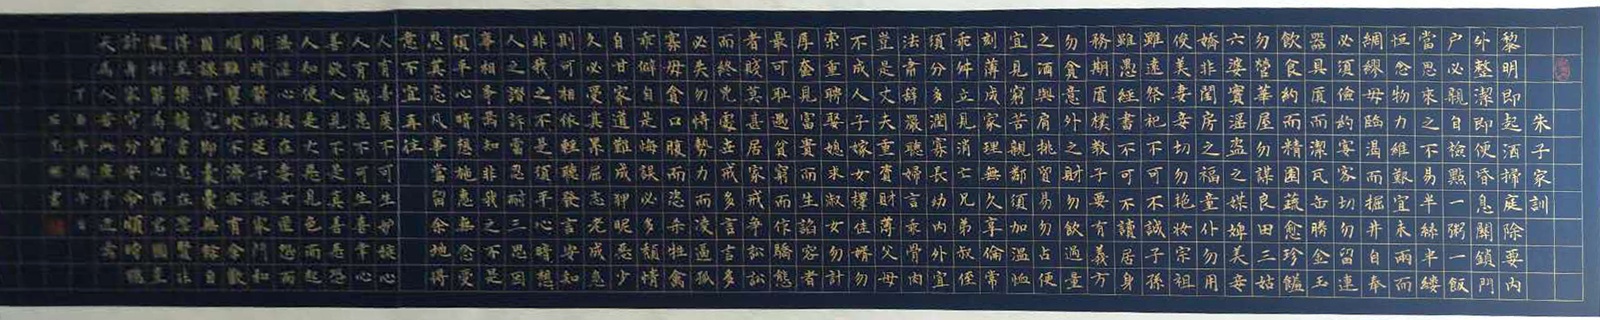 朱子家訓
黎明即起洒掃庭除要內
外整潔即便昏息關鎖門
户必親自檢點一粥一飯
當思來之不易半絲半縷
恒念物力維艱宜未雨而
綢繆毋臨渴而掘井自奉
必須儉約宴客切勿留連
器具质而潔瓦缶勝金玉
飲食約而精園蔬愈珍饈
勿營華屋勿謀良田三姑
六婆實淫盜之媒婢美妾
嬌非閨房之福童仆勿用
俊美妻妾切勿艷妝宗祖
雖遠祭祀不可不誠子孫
雖愚經書不可不讀居身
務期质樸教子要有義方
勿貪意外之財勿飲過量
之酒與肩挑貿易勿占便
宜見窮苦親鄰須加溫恤
刻薄成家理無久享倫常
乖舛立見消亡兄弟叔侄
須分多潤寡長幼內外宜
法肅辭嚴聽婦言乖骨肉
豈是丈夫重資財薄父母
不成人子嫁女擇佳婿勿
索重聘娶媳求淑女勿計
厚奩見富貴而生諂容者
最可恥遇貧窮而作驕態
者賤莫甚居家戒爭訟訟
而終兇處世戒多言言多
必失勿恃勢力而凌逼孤
寡毋貪口腹而恣杀牲禽
乖僻自是悔誤必多頹惰
自甘家道難成狎昵惡少
久必受其累屈志老成急
則可相依輕聽發言安知
非我之不是須平心暗想
人之譖訴當忍耐三思因
事相爭焉知非我之不是
須平心暗想施惠無念受
恩莫忘凡事當留餘地得
意不宜再往
人有喜慶不可生妒嫉心
人有禍患不可生喜幸心
善欲人見不是真善惡恐
人知便是大惡見色而起
淫心報在妻女匿怨而
用暗箭禍延子孫家門和
順雖饔飧不濟亦有餘歡
國課早完即囊無餘自
得至樂讀書志在聖賢非
徒科第為官心存君國豈
計身家守分安命順時聽
天為人若此庶乎近焉